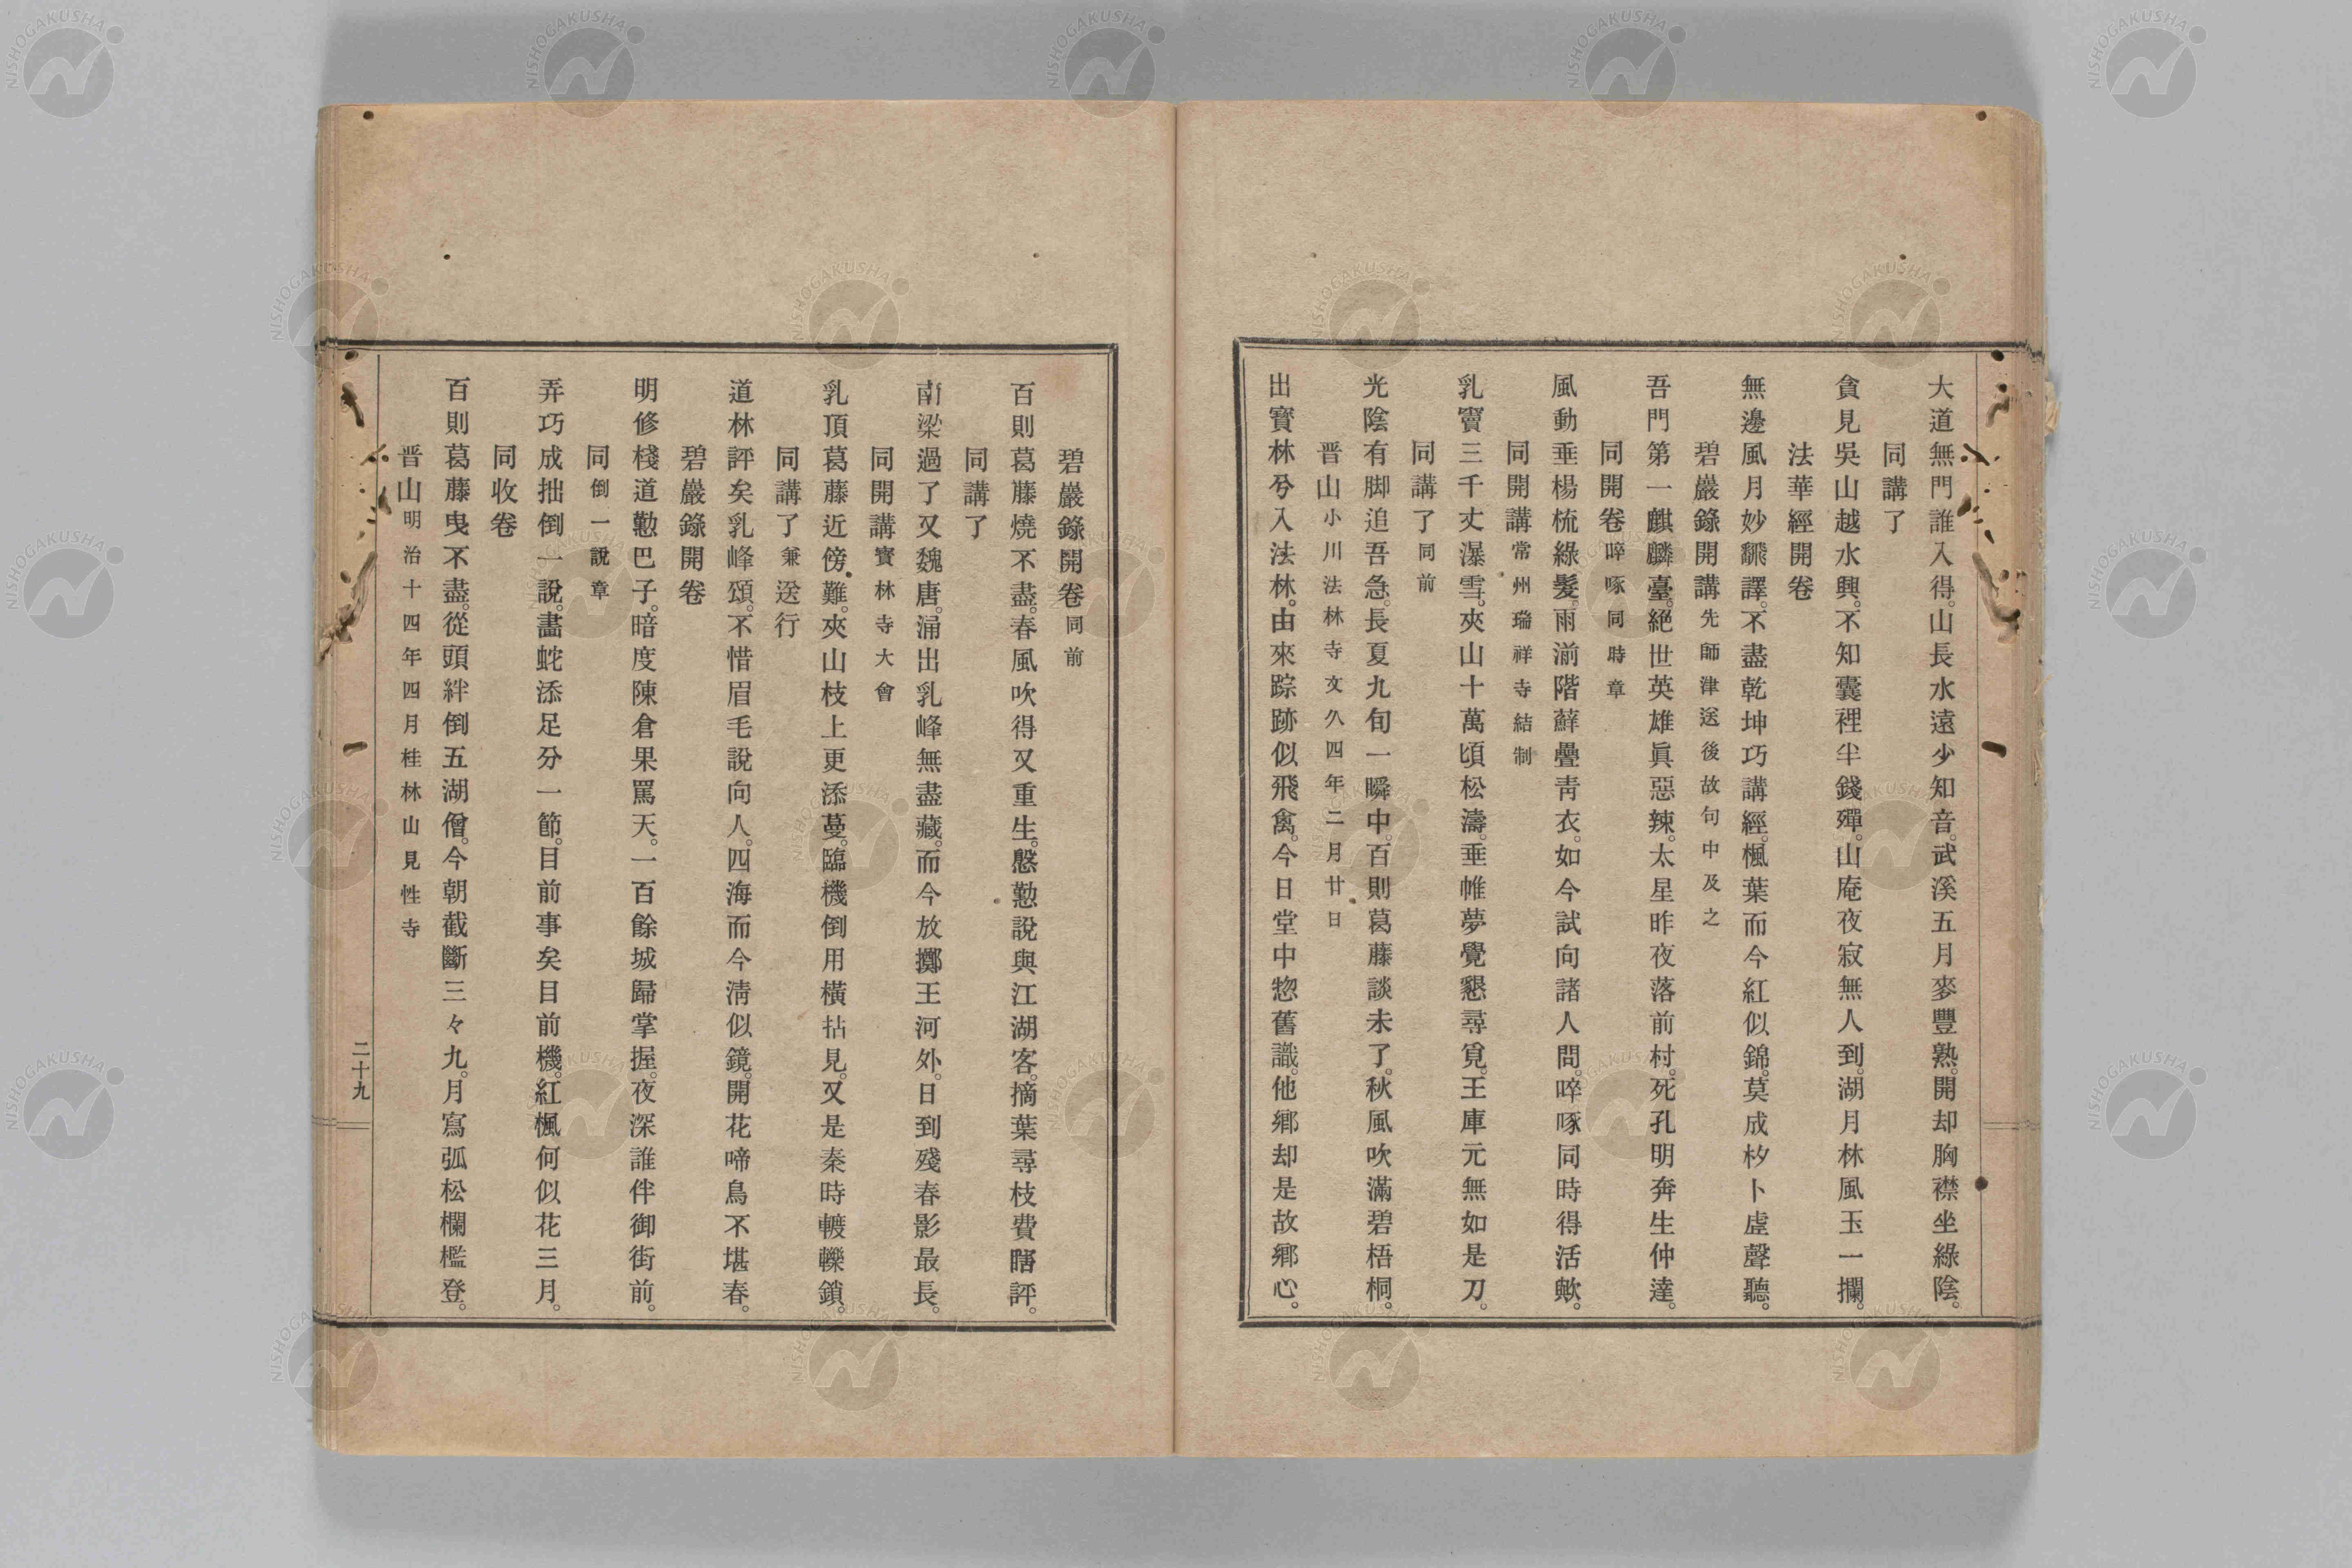 大道無門誰入得。山長水遠少知音。武溪五月麥豐熟。開却胸襟坐綠陰。
同講了
貪見吳山越水興。不知囊裡半錢殫。山庵夜寂無人到。湖月林風玉一攔。
法華經開卷
無邊風月妙飜譯。不盡乾坤巧講經。楓葉而今紅似錦。莫成杪卜虛聲聽。
碧巖錄開講先師津送後故句中及之
吾門第一麒麟臺。絕世英雄眞惡辣。太星昨夜落前村。死孔明奔生仲達。
同開卷啐啄同時章
風動垂楊梳綠髮。雨湔階蘚疊靑衣。如今試向諸人問。啐啄同時得活歟。
同開講常州瑞祥寺結制
乳竇三千丈瀑雪。夾山十萬頃松濤。垂帷夢覺懇尋覓。王庫元無如是刀。
同講了同前
光陰有脚追吾急。長夏九旬一瞬中。百則葛藤談未了。秋風吹滿碧梧桐。
晋山小川法林寺文久四年二月廿日
出寶林兮入法林。由來踪跡似飛禽。今日堂中惣舊識。他鄉却是故鄉心。
碧巖錄開卷同前
百則葛藤燒不盡。春風吹得又重生。慇懃說與江湖客。摘葉尋枝費瞎評。
同講了
南梁過了又魏唐。涌出乳峰無盡藏。而今放擲王河外。日到殘春影最長。
同開講寶林寺大會
乳頂葛藤近傍難。夾山枝上更添蔓。臨機倒用橫拈見。又是秦時轆轢鑽。
同講了兼送行
道林評矣乳峰頌。不惜眉毛說向人。四海而今淸似鏡。開花啼鳥不堪春。
碧巖錄開卷
明修棧道懃巴子。暗度陳倉果罵天。一百餘城歸掌握。夜深誰伴御街前。
同倒一說章
弄巧成拙倒一說。畵蛇添足分一節。目前事矣目前機。紅楓何似花三月。
同收卷
百則葛藤曳不盡。從頭絆倒五湖僧。今朝截斷三々九。月寫弧松欄檻登。
晋山明治十四年四月桂林山見性寺
二十九
NISHOGAKUSHA